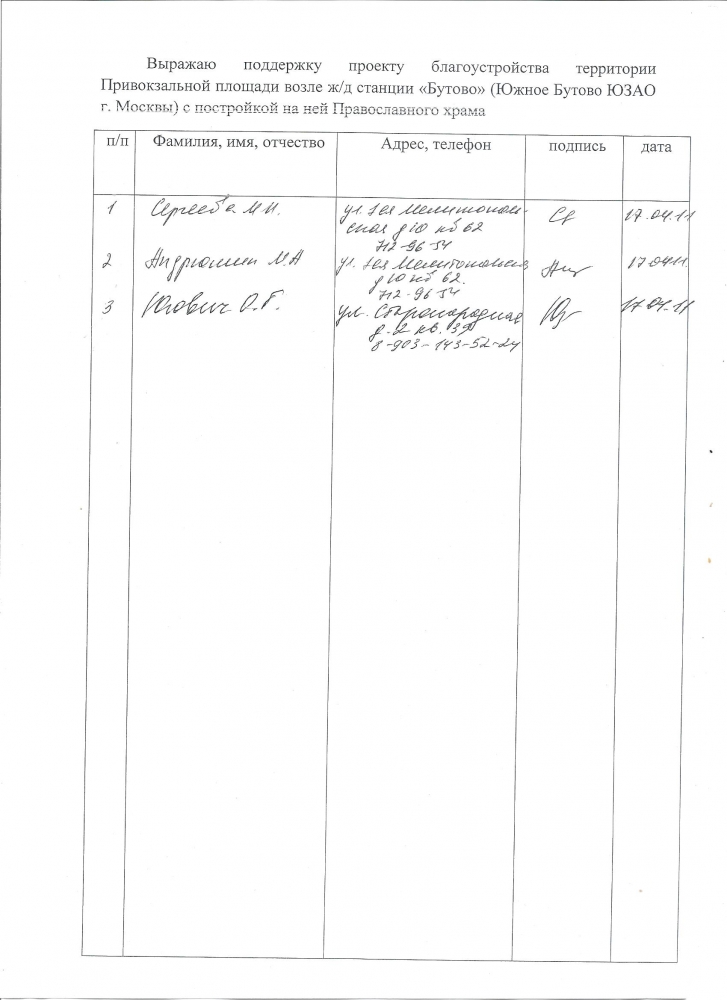 Выражаю поддержку проекту благоустройства территории
Привокзальной площади возле ж/д станции «Бутово» (Южное Бутово ЮЗАО
г. Москвы) с постройкой на ней Православного храма
п/п Фамилия, имя, отчество Адрес, телефон подпись дата
1 Сергеева М.И. ул. 1ая Мелитополь- 17.04.11
ская д 10 кв 62
712-96-54
2 М.А ул. 1ая Мелитопольская 170411.
д 10 кв 62.
712-96 54
3 Югович О.Г. ул. Старонародная 17.04.11
д. 2 кв. 39
8-903-143-52-24